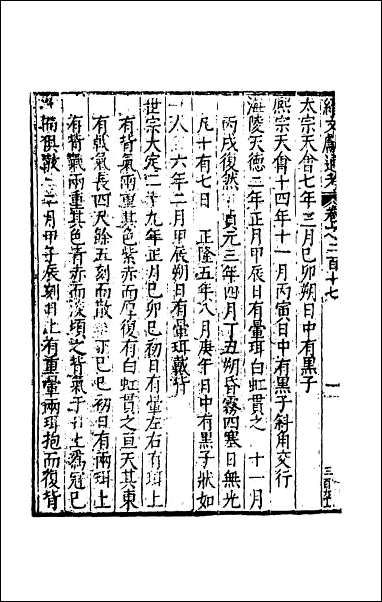 續文獻通考 卷之二百十七
太宗天會七年三月己卯朔日中有黑子
熙宗天會十四年十一月丙寅日中有黑子斜角交行
海陵天德三年正月甲辰日有暈珥白虹貫之 十一月
丙戌復然 貞元三年四月丁丑朔昏霧四塞日無光
凡十有七日 正隆五年八月庚午日中有黑子狀如
人 六年二月甲辰朔日有暈珥戴背
世宗大定二十九年正月己卯巳初日有暈左右有珥上
有背氣兩重其色紫赤而厚復有白虹貫之亘天其東
有戟氣長四尺餘五刻而散 巳巳初日有兩珥上
有背氣兩重其色青赤而淡頃之背氣于日上爲冠已
而俱散 二月甲子辰刻日上有重暈兩珥抱而復背